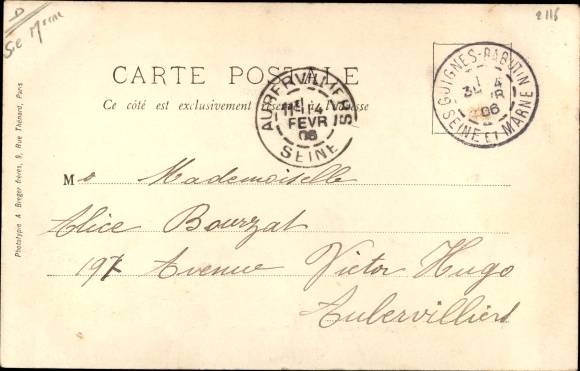 D
Sie Marne
2116
CARTE POSTALE
Ce côté est exclusivement réservé à l'Adresse
AUBERVILLIERS
4
FEVR
06
SEINE
GUIGNES-RABUTIN
4
06
SEINE ET MARNE
M Mademoiselle
Alice Bourzat
197 Avenue Victor Hugo
Aubervilliers
Phototypie A Breger frères, 9, Rue Thénard, Paris